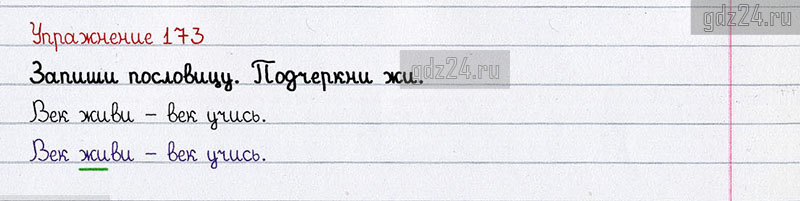 gdz24.ru
Упражнение 173
Запиши пословицу. Подчеркни жи.
gdz24.ru
Век живи – век учись.
Век живи – век учись.
gdz24.ru